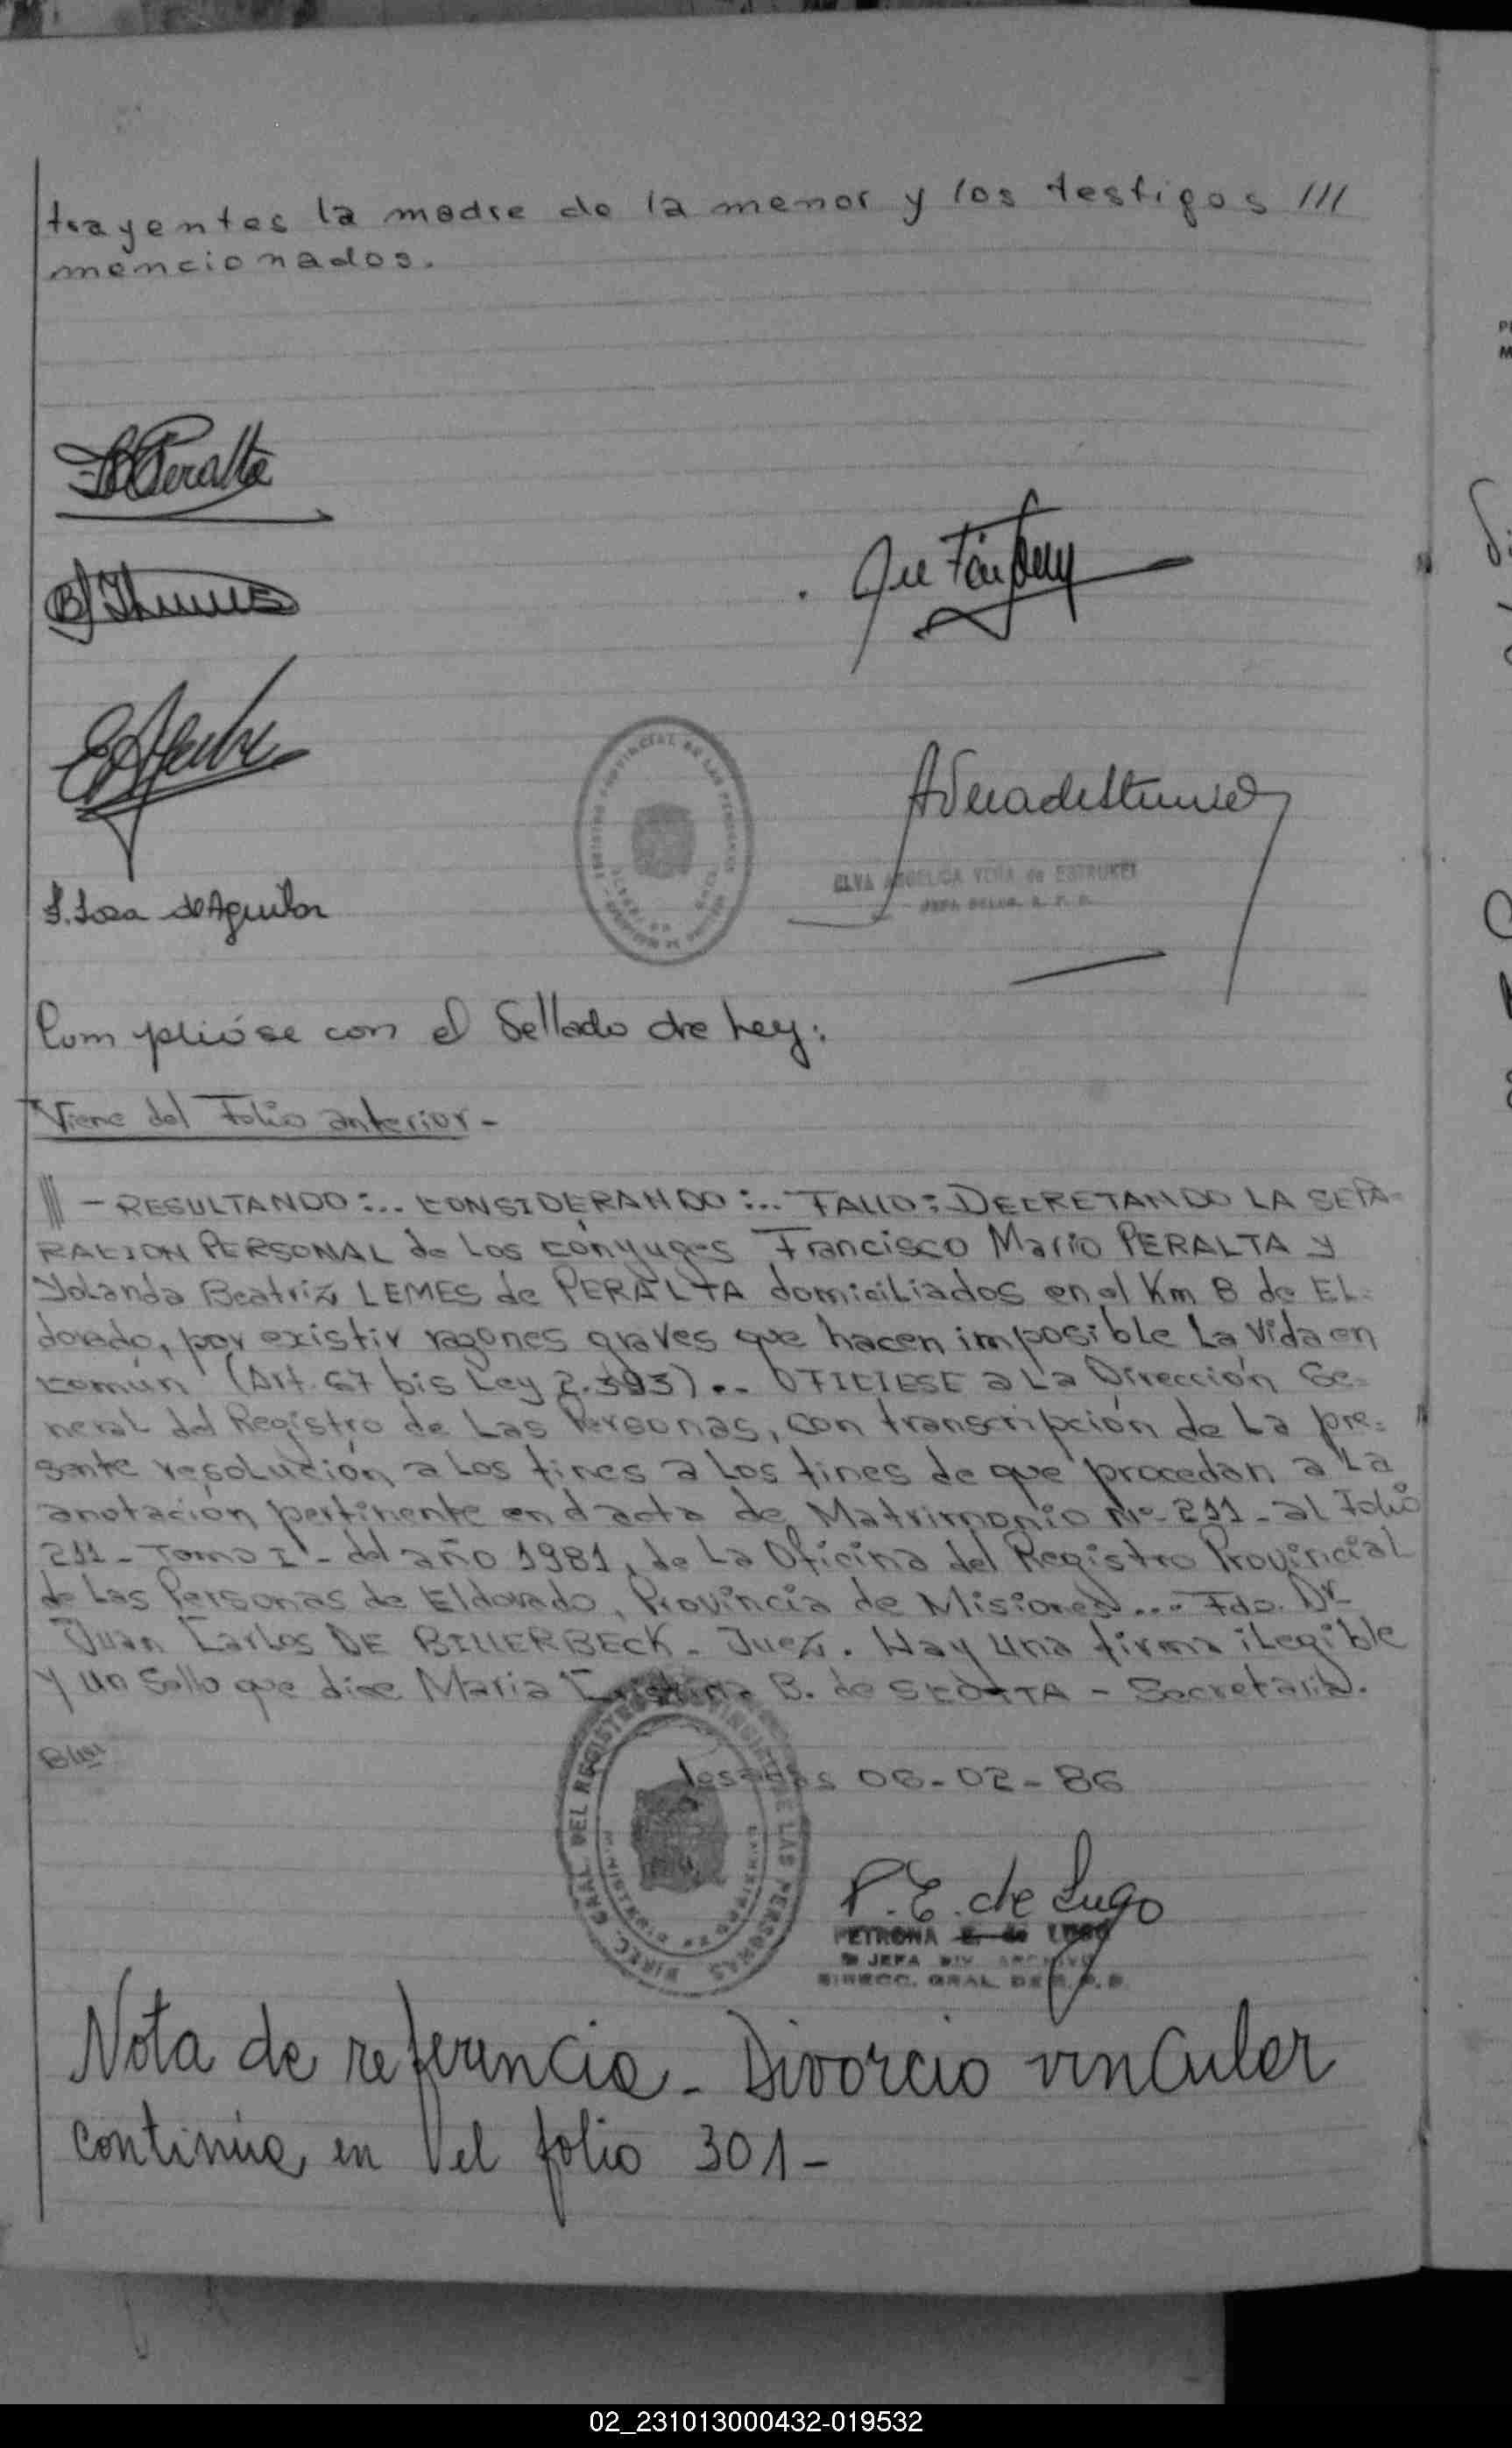 trayentes la madre de la menor y los testigos ///
mencionados.
Peralta
de Aguilar
ELVA ANGELICA VERA de ESTRUKEL
Cumplióse con el Sellado de ley:
Viene del Folio anterior -
/// - RESULTANDO:.. CONSIDERANDO:.. FALLO: DECRETANDO LA SEPA-
RACION PERSONAL de Los cónyuges Francisco Mario PERALTA y
Yolanda Beatriz LEMES de PERALTA domiciliados en el Km 8 de EL-
dorado, por existir razones graves que hacen imposible La vida en
común (Art. 67 bis Ley 2.393)... OFICIESE a La Dirección Ge-
neral del Registro de Las Personas, con transcripción de La pre-
sente resolución a Los fines a Los fines de que procedan a La
anotación pertinente en el acta de Matrimonio Nº 211 - al Folio
211 - Tomo I - del año 1981, de La Oficina del Registro Provincial
de Las Personas de Eldorado, Provincia de Misiones... Fdo. Dr
Juan Carlos DE BILLERBECK - Juez. Hay una firma iLegible
y un Sello que dice Maria Cristina B. de SCOTTA - Secretaria.
Posadas 06-02-86
DIREC. GRAL. DEL REGISTRO DE LAS PERSONAS
P.E. de Lugo
PETRONA E. de LUGO
JEFA DIV. ARCHIVO
DIRECC. GRAL. DE R.P.P.
Nota de referencia - Divorcio vincular
continúa en el folio 301 -
02_231013000432-019532